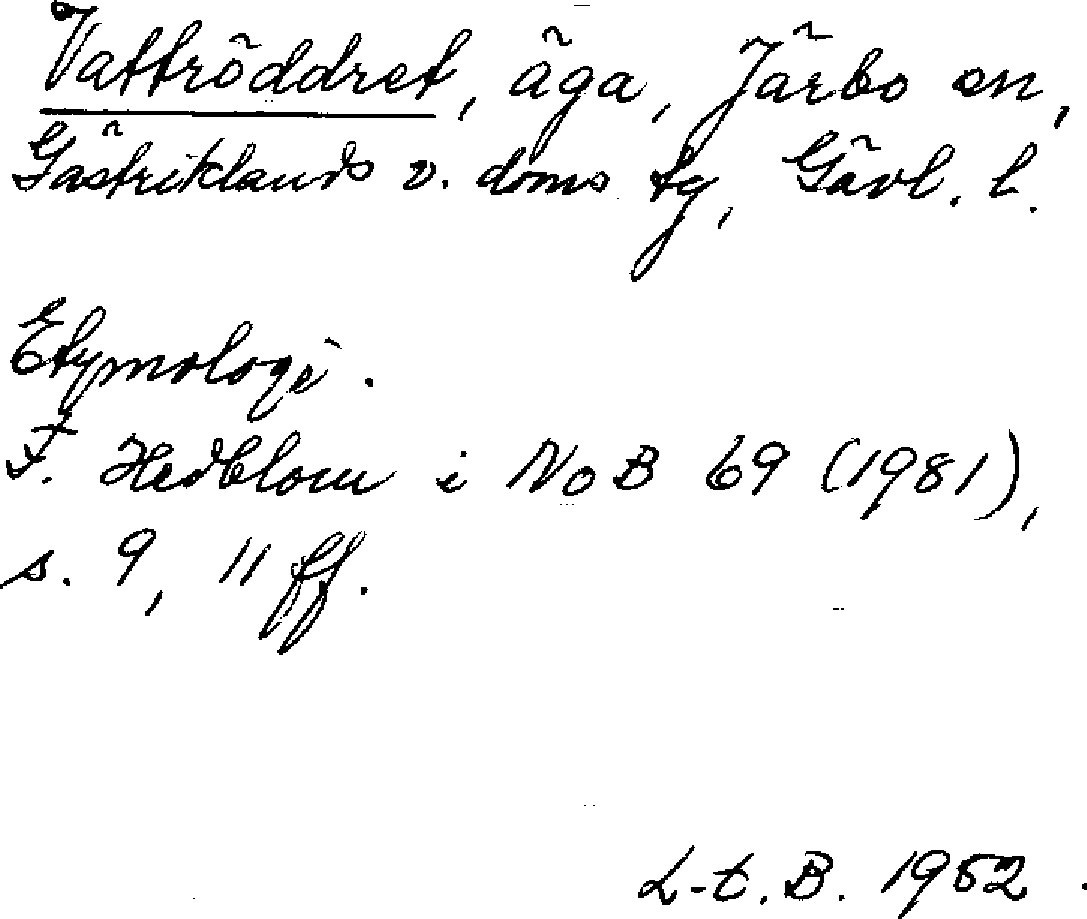 Vattröddret, äga, Järbo sn,
Gästriklands v. doms tg, Gävl. l.
Etymologi.
F. Hedblom i NoB 69 (1981),
s. 9, 11 ff.
L-t. B. 1982.